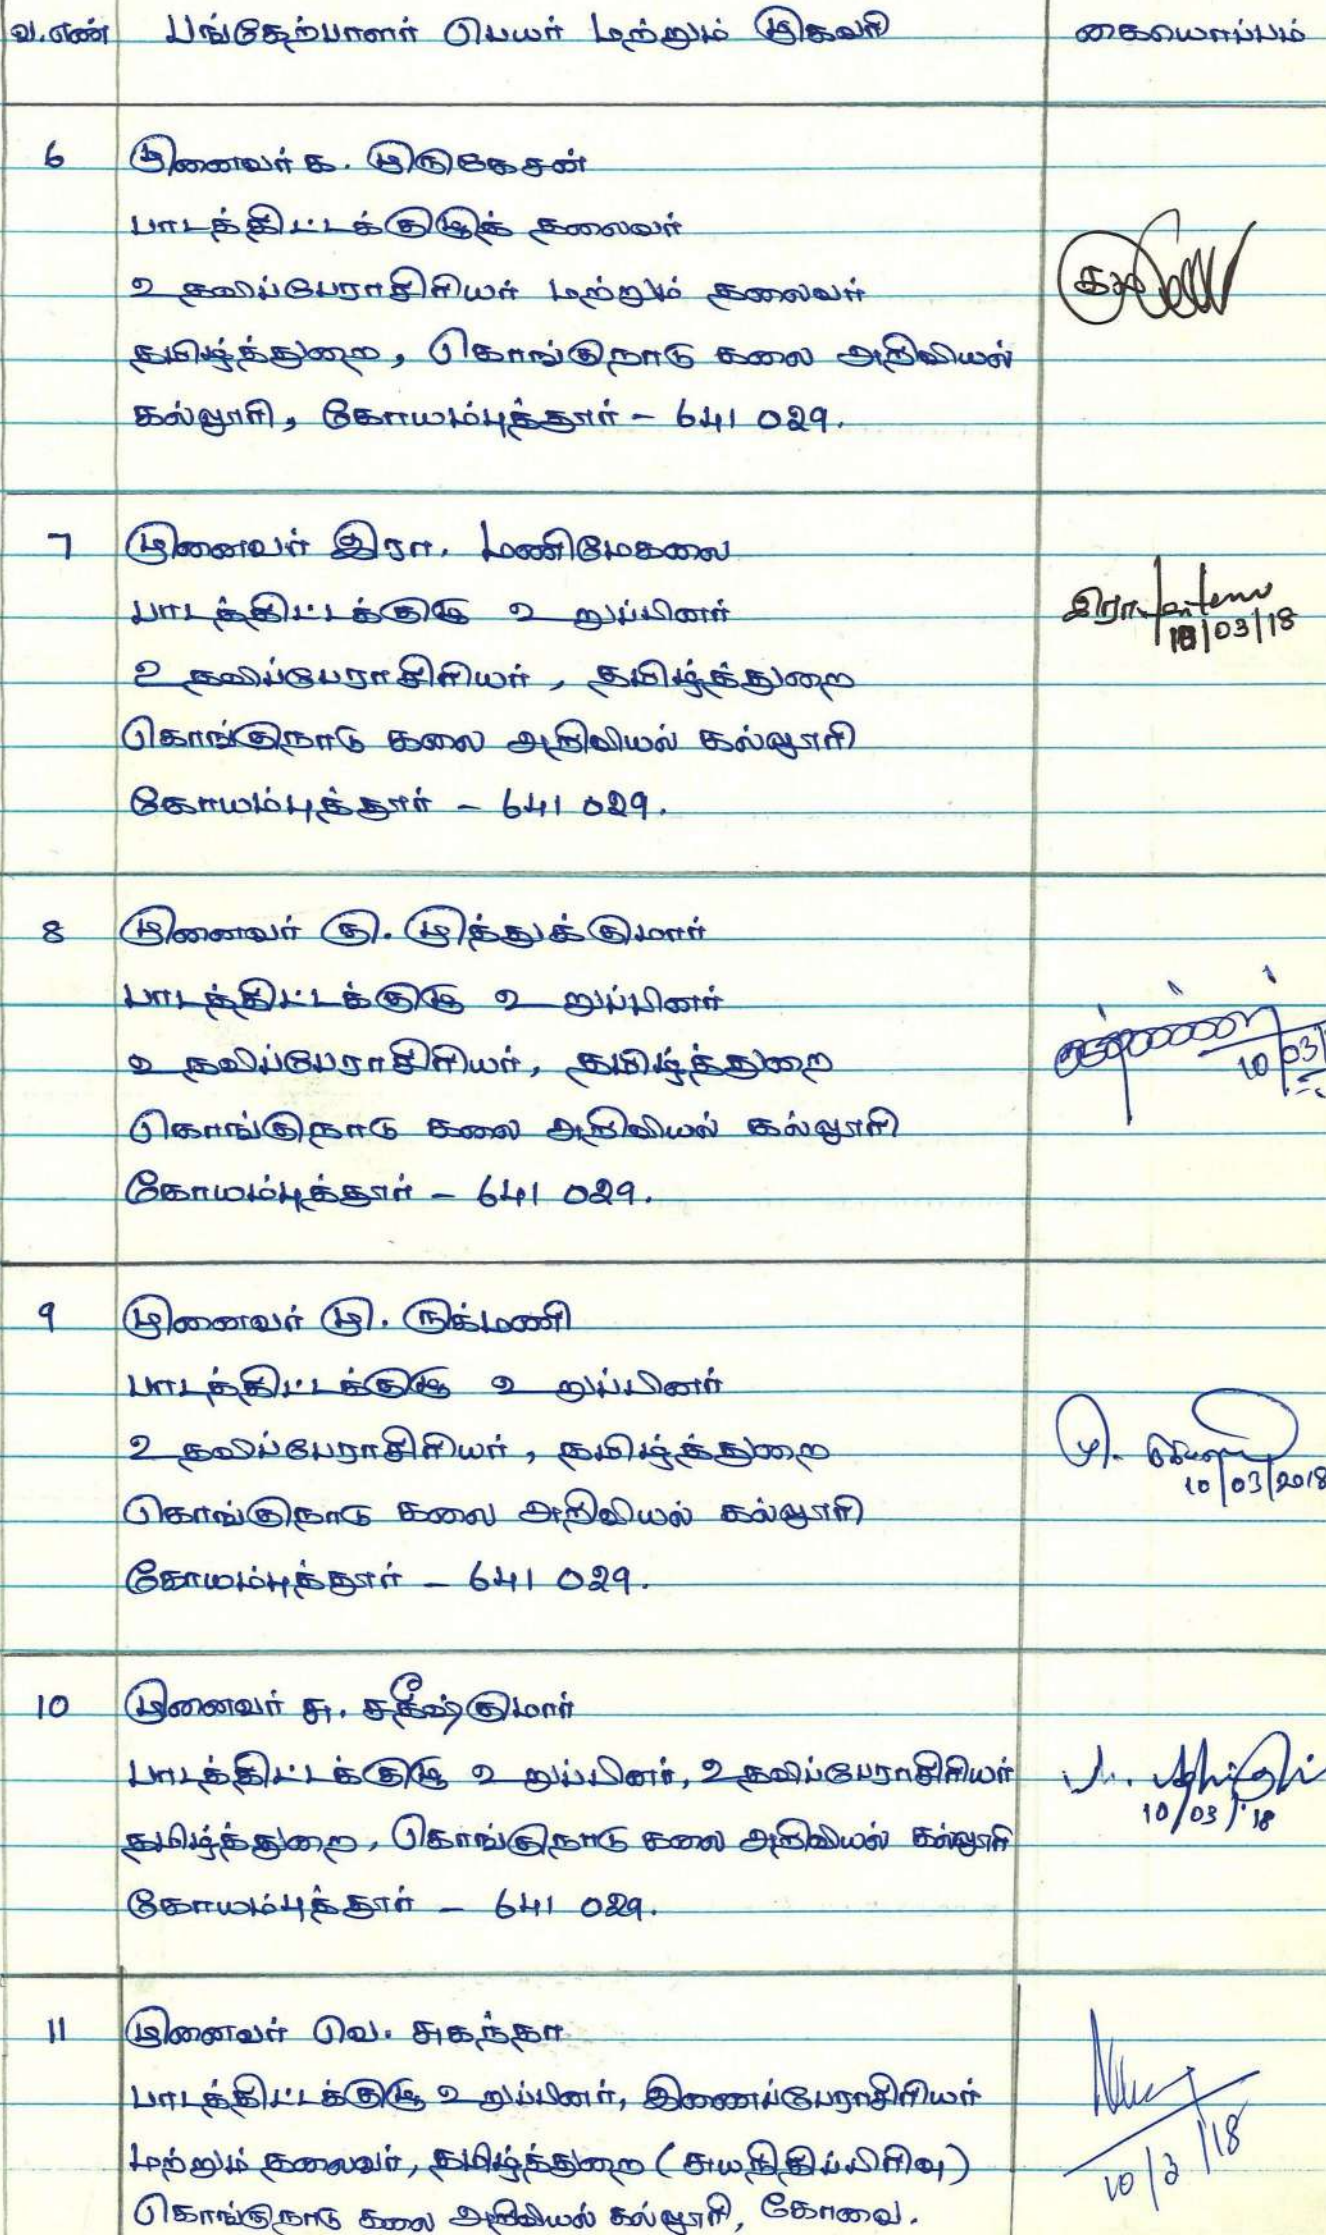 வ.எண் பங்கேற்பாளர் பெயர் மற்றும் முகவரி கையொப்பம்
6 முனைவர் க. முருகேசன்
பாடத்திட்டக்குழுத் தலைவர்
உதவிப்பேராசிரியர் மற்றும் தலைவர்
தமிழ்த்துறை, கொங்குநாடு கலை அறிவியல்
கல்லூரி, கோயம்புத்தூர் - 641 029.
7 முனைவர் இரா. மணிமேகலை
பாடத்திட்டக்குழு உறுப்பினர்
இரா.
/03/18
உதவிப்பேராசிரியர், தமிழ்த்துறை
கொங்குநாடு கலை அறிவியல் கல்லூரி
கோயம்புத்தூர் - 641 029.
8 முனைவர் கு. முத்துக்குமார்
பாடத்திட்டக்குழு உறுப்பினர்
உதவிப்பேராசிரியர், தமிழ்த்துறை
10/03/
கொங்குநாடு கலை அறிவியல் கல்லூரி
கோயம்புத்தூர் - 641 029.
9 முனைவர் மு. ருக்மணி
பாடத்திட்டக்குழு உறுப்பினர்
உதவிப்பேராசிரியர், தமிழ்த்துறை
மு.
10/03/2018
கொங்குநாடு கலை அறிவியல் கல்லூரி
கோயம்புத்தூர் - 641 029.
10 முனைவர் சு. சதீஷ்குமார்
பாடத்திட்டக்குழு உறுப்பினர், உதவிப்பேராசிரியர்
10/03/18
தமிழ்த்துறை, கொங்குநாடு கலை அறிவியல் கல்லூரி
கோயம்புத்தூர் - 641 029.
11 முனைவர் வெ. சுகந்தா
பாடத்திட்டக்குழு உறுப்பினர், இணைப்பேராசிரியர்
மற்றும் தலைவர், தமிழ்த்துறை (சுயநிதிப்பிரிவு)
10/3/18
கொங்குநாடு கலை அறிவியல் கல்லூரி, கோவை.